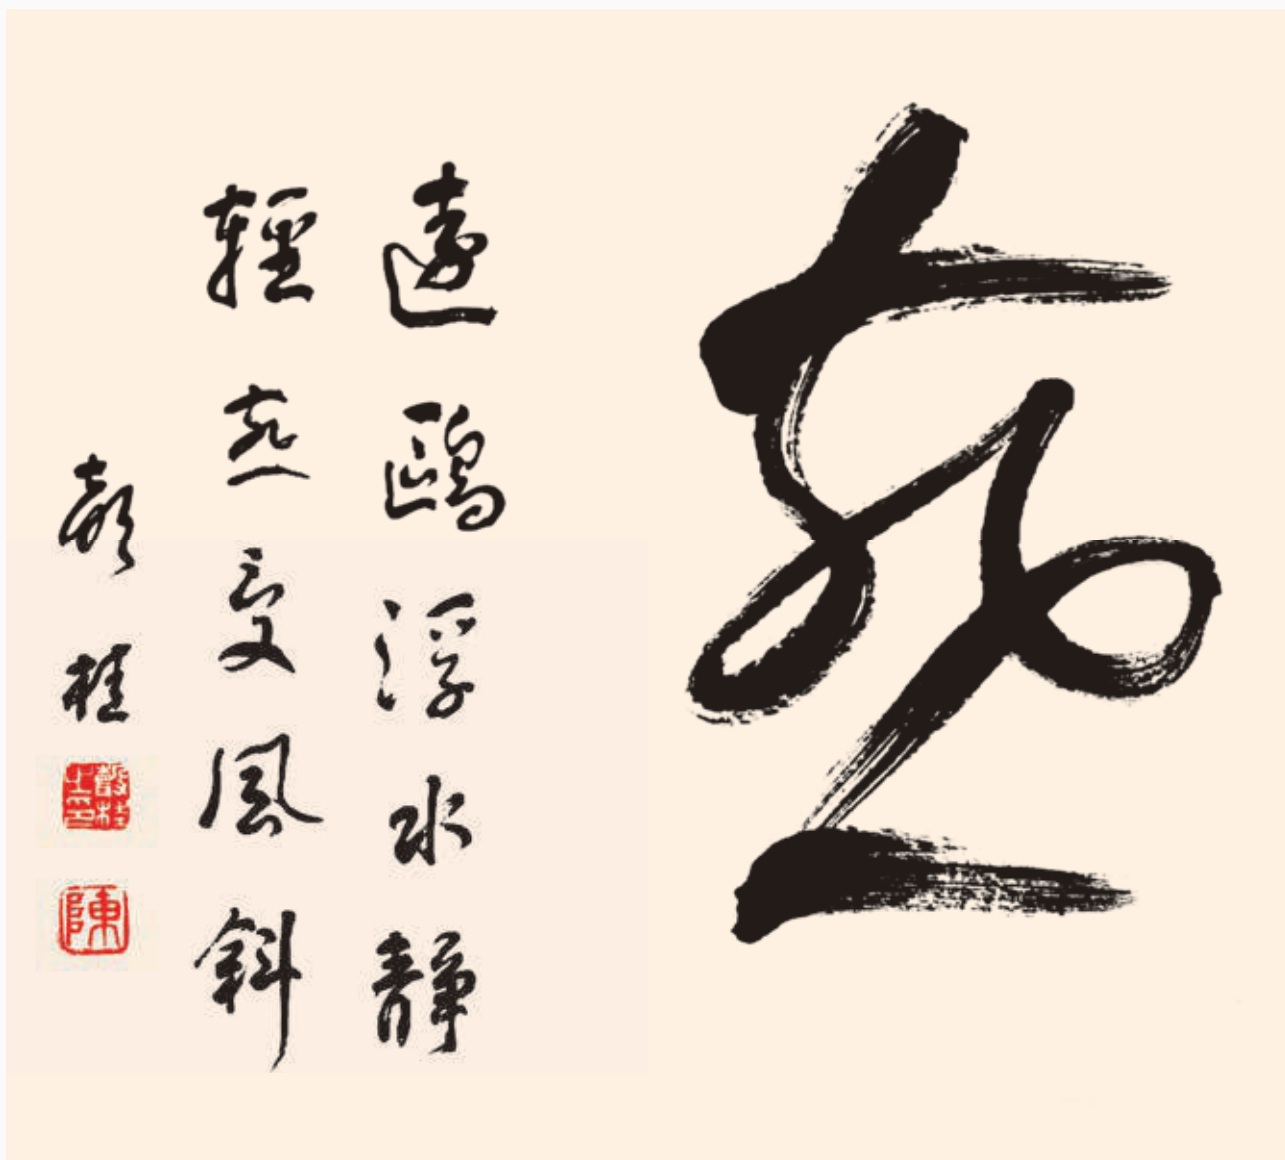 燕
遠鷗浮水靜
輕燕受風斜
桂
陳